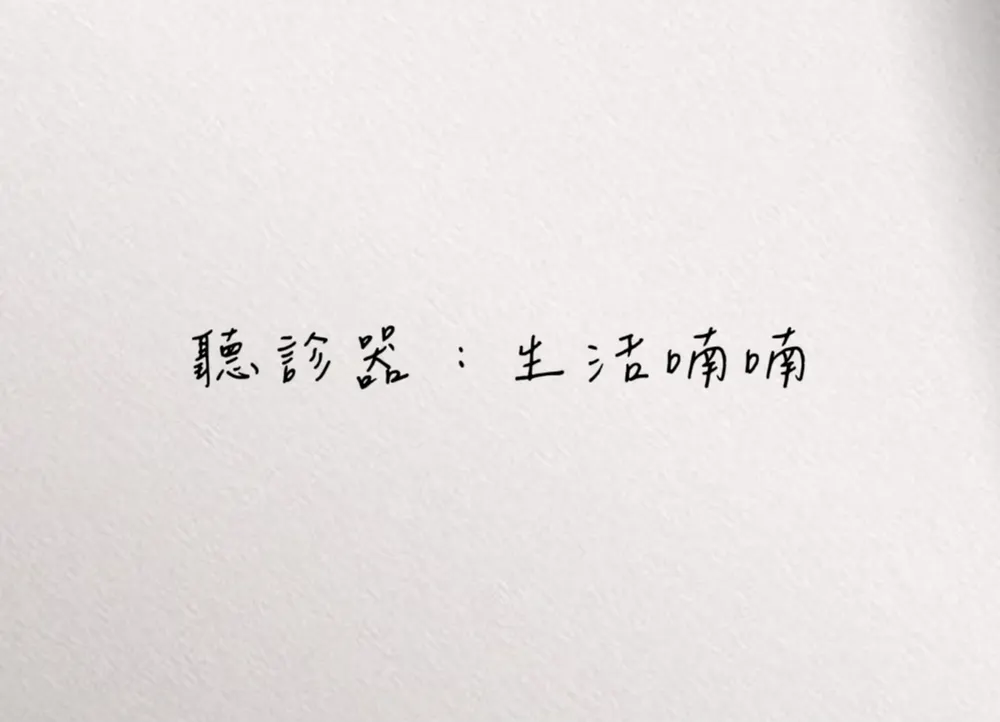 聽診器：生活喃喃